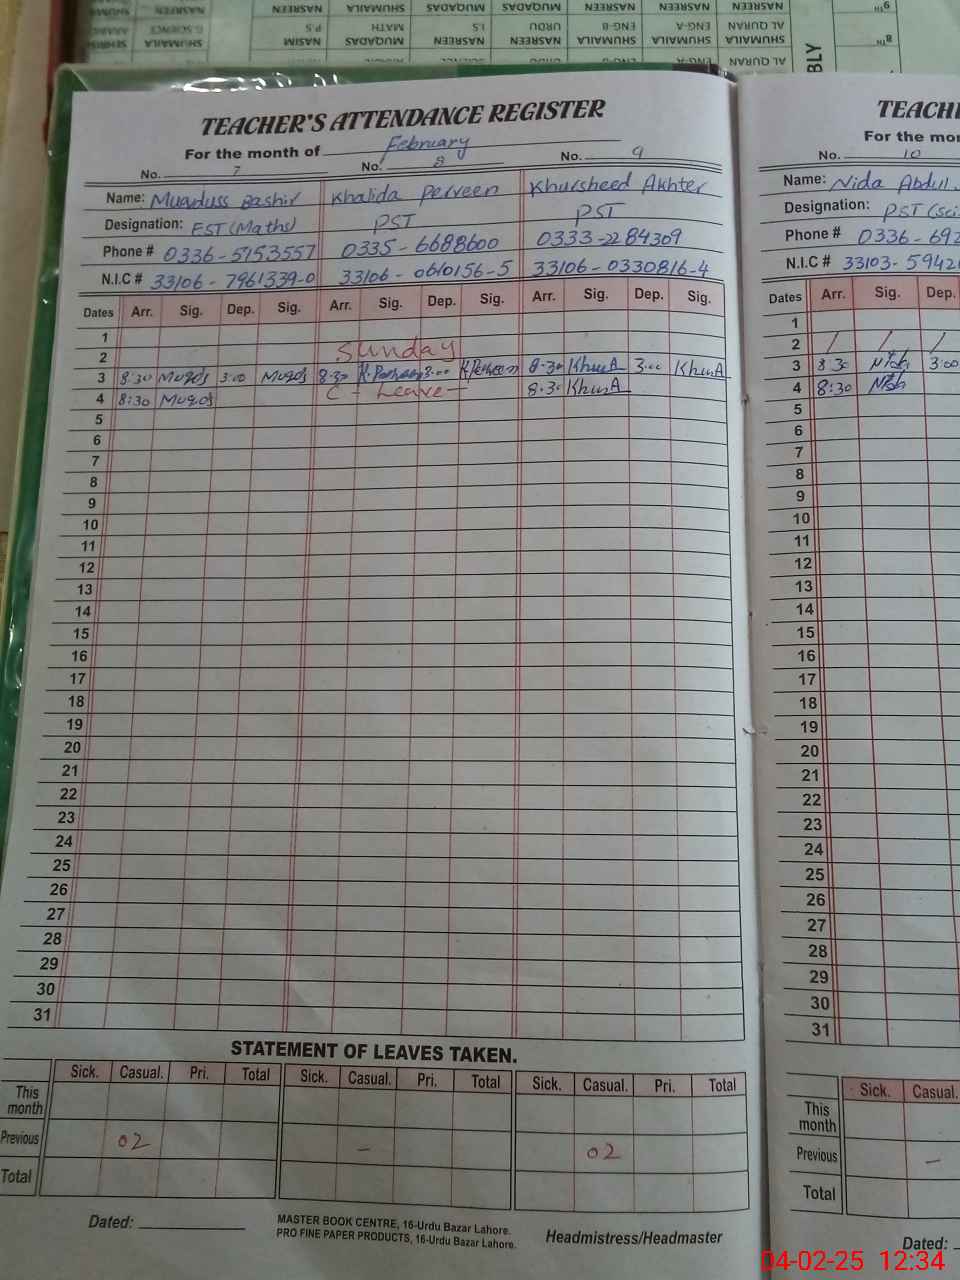 NASREEN NASREEN MUQADAS MUQADAS SHUMAILA NASREEN
9TH
AL QURAN ENG-A ENG-B URDU I.S MATH P.S G.SCIENCE
SHUMAILA SHUMAILA SHUMAILA NASREEN NASREEN MUQADAS NASIM SHUMAILA
8TH
AL QURAN ENG-A
BLY
TEACHER'S ATTENDANCE REGISTER
For the month of February
No. 7 No. 8 No. 9
Name: Bashir Khalida Perveen Khursheed Akhter
Designation: EST (Maths) PST PST
Phone # 0336-5153557 0335-6688600 0333-2284309
N.I.C # 33106-7961339-0 33106-0610156-5 33106-0330816-4
Dates Arr. Sig. Dep. Sig. Arr. Sig. Dep. Sig. Arr. Sig. Dep. Sig.
1
2 Sunday
3 8:30 3:00 8:30 K.Perveen 3:00 K.Perveen 8:30 KhurA 3:00 KhurA
4 8:30 C - Leave - 8:30 KhurA
5
6
7
8
9
10
11
12
13
14
15
16
17
18
19
20
21
22
23
24
25
26
27
28
29
30
31
STATEMENT OF LEAVES TAKEN.
Sick. Casual. Pri. Total Sick. Casual. Pri. Total Sick. Casual. Pri. Total
This month
Previous 02 - 02
Total
Dated:
MASTER BOOK CENTRE, 16-Urdu Bazar Lahore.
PRO FINE PAPER PRODUCTS, 16-Urdu Bazar Lahore.
Headmistress/Headmaster
TEACH
For the mon
No. 10
Name: Nida Abdul
Designation: PST (Sci
Phone # 0336-692
N.I.C # 33103-5942
Dates Arr. Sig. Dep.
1
2 / / /
3 8:30 Nida 3:00
4 8:30
5
6
7
8
9
10
11
12
13
14
15
16
17
18
19
20
21
22
23
24
25
26
27
28
29
30
31
Sick. Casual.
This month
Previous -
Total
Dated:
04-02-25 12:34